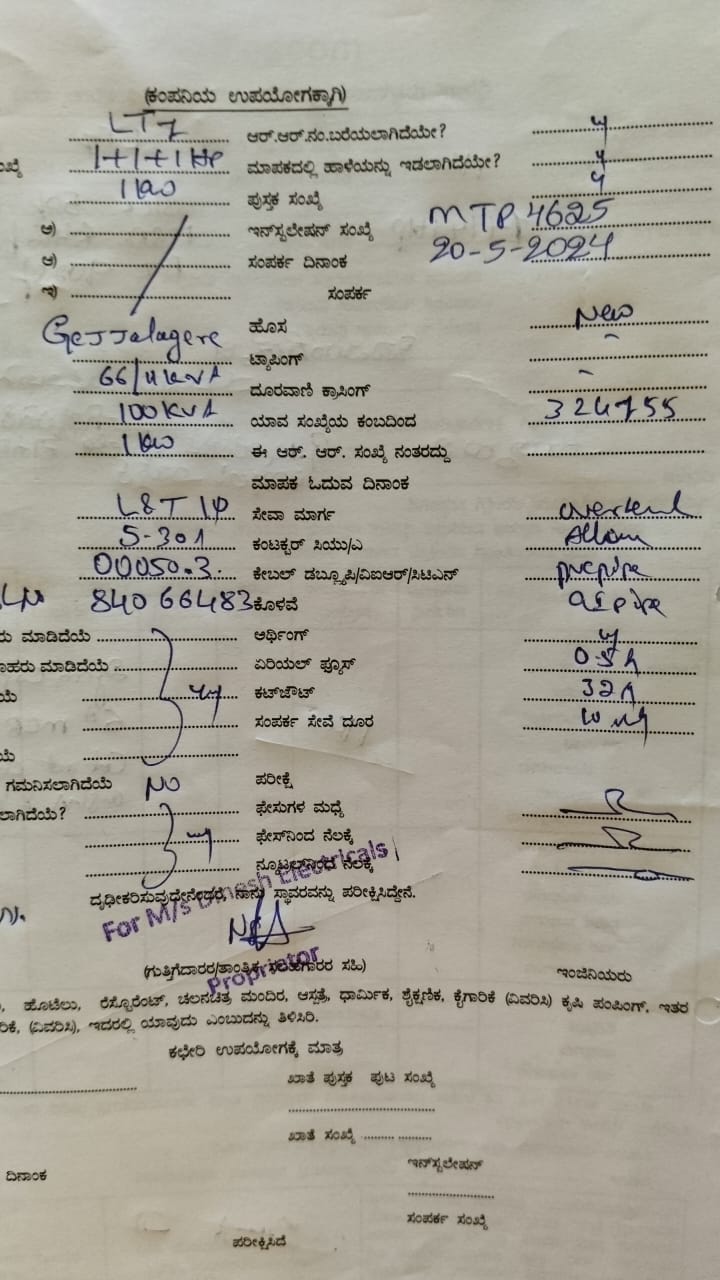 (ಕಂಪನಿಯ ಉಪಯೋಗಕ್ಕಾಗಿ)
LT7 ಆರ್.ಆರ್.ನಂ.ಬರೆಯಲಾಗಿದೆಯೇ? y
ಖ್ಯೆ 1+1+1 HP ಮಾಪಕದಲ್ಲಿ ಹಾಳೆಯನ್ನು ಇಡಲಾಗಿದೆಯೇ? y
1 kw ಪುಸ್ತಕ ಸಂಖ್ಯೆ y
ಅ) ಇನ್‌ಸ್ಟಲೇಷನ್ ಸಂಖ್ಯೆ MTP 4625
ಆ) ಸಂಪರ್ಕ ದಿನಾಂಕ 20-5-2024
ಇ) ಸಂಪರ್ಕ
Gejjalagere ಹೊಸ New
ಟ್ಯಾಪಿಂಗ್ -
66/11 KVA ದೂರವಾಣಿ ಕ್ರಾಸಿಂಗ್ -
100 KVA ಯಾವ ಸಂಖ್ಯೆಯ ಕಂಬದಿಂದ 324755
1 kw ಈ ಆರ್. ಆರ್. ಸಂಖ್ಯೆ ನಂತರದ್ದು
ಮಾಪಕ ಓದುವ ದಿನಾಂಕ
L&T 1φ ಸೇವಾ ಮಾರ್ಗ
5-30A ಕಂಟಕ್ಟರ್ ಸಿಯು/ಎ
00050.3 ಕೇಬಲ್ ಡಬ್ಲ್ಯೂಪಿ/ವಿಐಆರ್/ಸಿಟಿಎನ್
84066483 ಕೊಳವೆ GI pipe
ರು ಮಾಡಿದೆಯೆ ಆರ್ಥಿಂಗ್ y
ಾಹರು ಮಾಡಿದೆಯೆ ಏರಿಯಲ್ ಫ್ಯೂಸ್
ಯೆ ಕಟ್‌ಔಟ್ 32A
ಸಂಪರ್ಕ ಸೇವೆ ದೂರ
ಯೆ
ಗಮನಿಸಲಾಗಿದೆಯೆ NO ಪರೀಕ್ಷೆ
ಲಾಗಿದೆಯೆ? ಫೇಸುಗಳ ಮಧ್ಯೆ
ಫೇಸ್‌ನಿಂದ ನೆಲಕ್ಕೆ
ನ್ಯೂಟ್ರಲ್‌ನಿಂದ ನೆಲಕ್ಕೆ
ದೃಢೀಕರಿಸುವುದೇನೇಂದರೆ, ನಾನು ಸ್ಥಾವರವನ್ನು ಪರೀಕ್ಷಿಸಿದ್ದೇನೆ.
For M/s Dinesh Electricals
(ಗುತ್ತಿಗೆದಾರರ/ತಾಂತ್ರಿಕ ಸಲಹೆಗಾರರ ಸಹಿ) ಇಂಜಿನಿಯರು
Proprietor
, ಹೊಟೆಲು, ರೆಸ್ಟೊರೆಂಟ್, ಚಲನಚಿತ್ರ ಮಂದಿರ, ಆಸ್ಪತ್ರೆ, ಧಾರ್ಮಿಕ, ಶೈಕ್ಷಣಿಕ, ಕೈಗಾರಿಕೆ (ವಿವರಿಸಿ) ಕೃಷಿ ಪಂಪಿಂಗ್, ಇತರ
ರಿಕೆ, (ವಿವರಿಸಿ), ಇದರಲ್ಲಿ ಯಾವುದು ಎಂಬುದನ್ನು ತಿಳಿಸಿರಿ.
ಕಛೇರಿ ಉಪಯೋಗಕ್ಕೆ ಮಾತ್ರ
ಖಾತೆ ಪುಸ್ತಕ ಪುಟ ಸಂಖ್ಯೆ
ಖಾತೆ ಸಂಖ್ಯೆ
ಇನ್‌ಸ್ಟಲೇಷನ್
ದಿನಾಂಕ
ಸಂಪರ್ಕ ಸಂಖ್ಯೆ
ಪರೀಕ್ಷಿಸಿದೆ